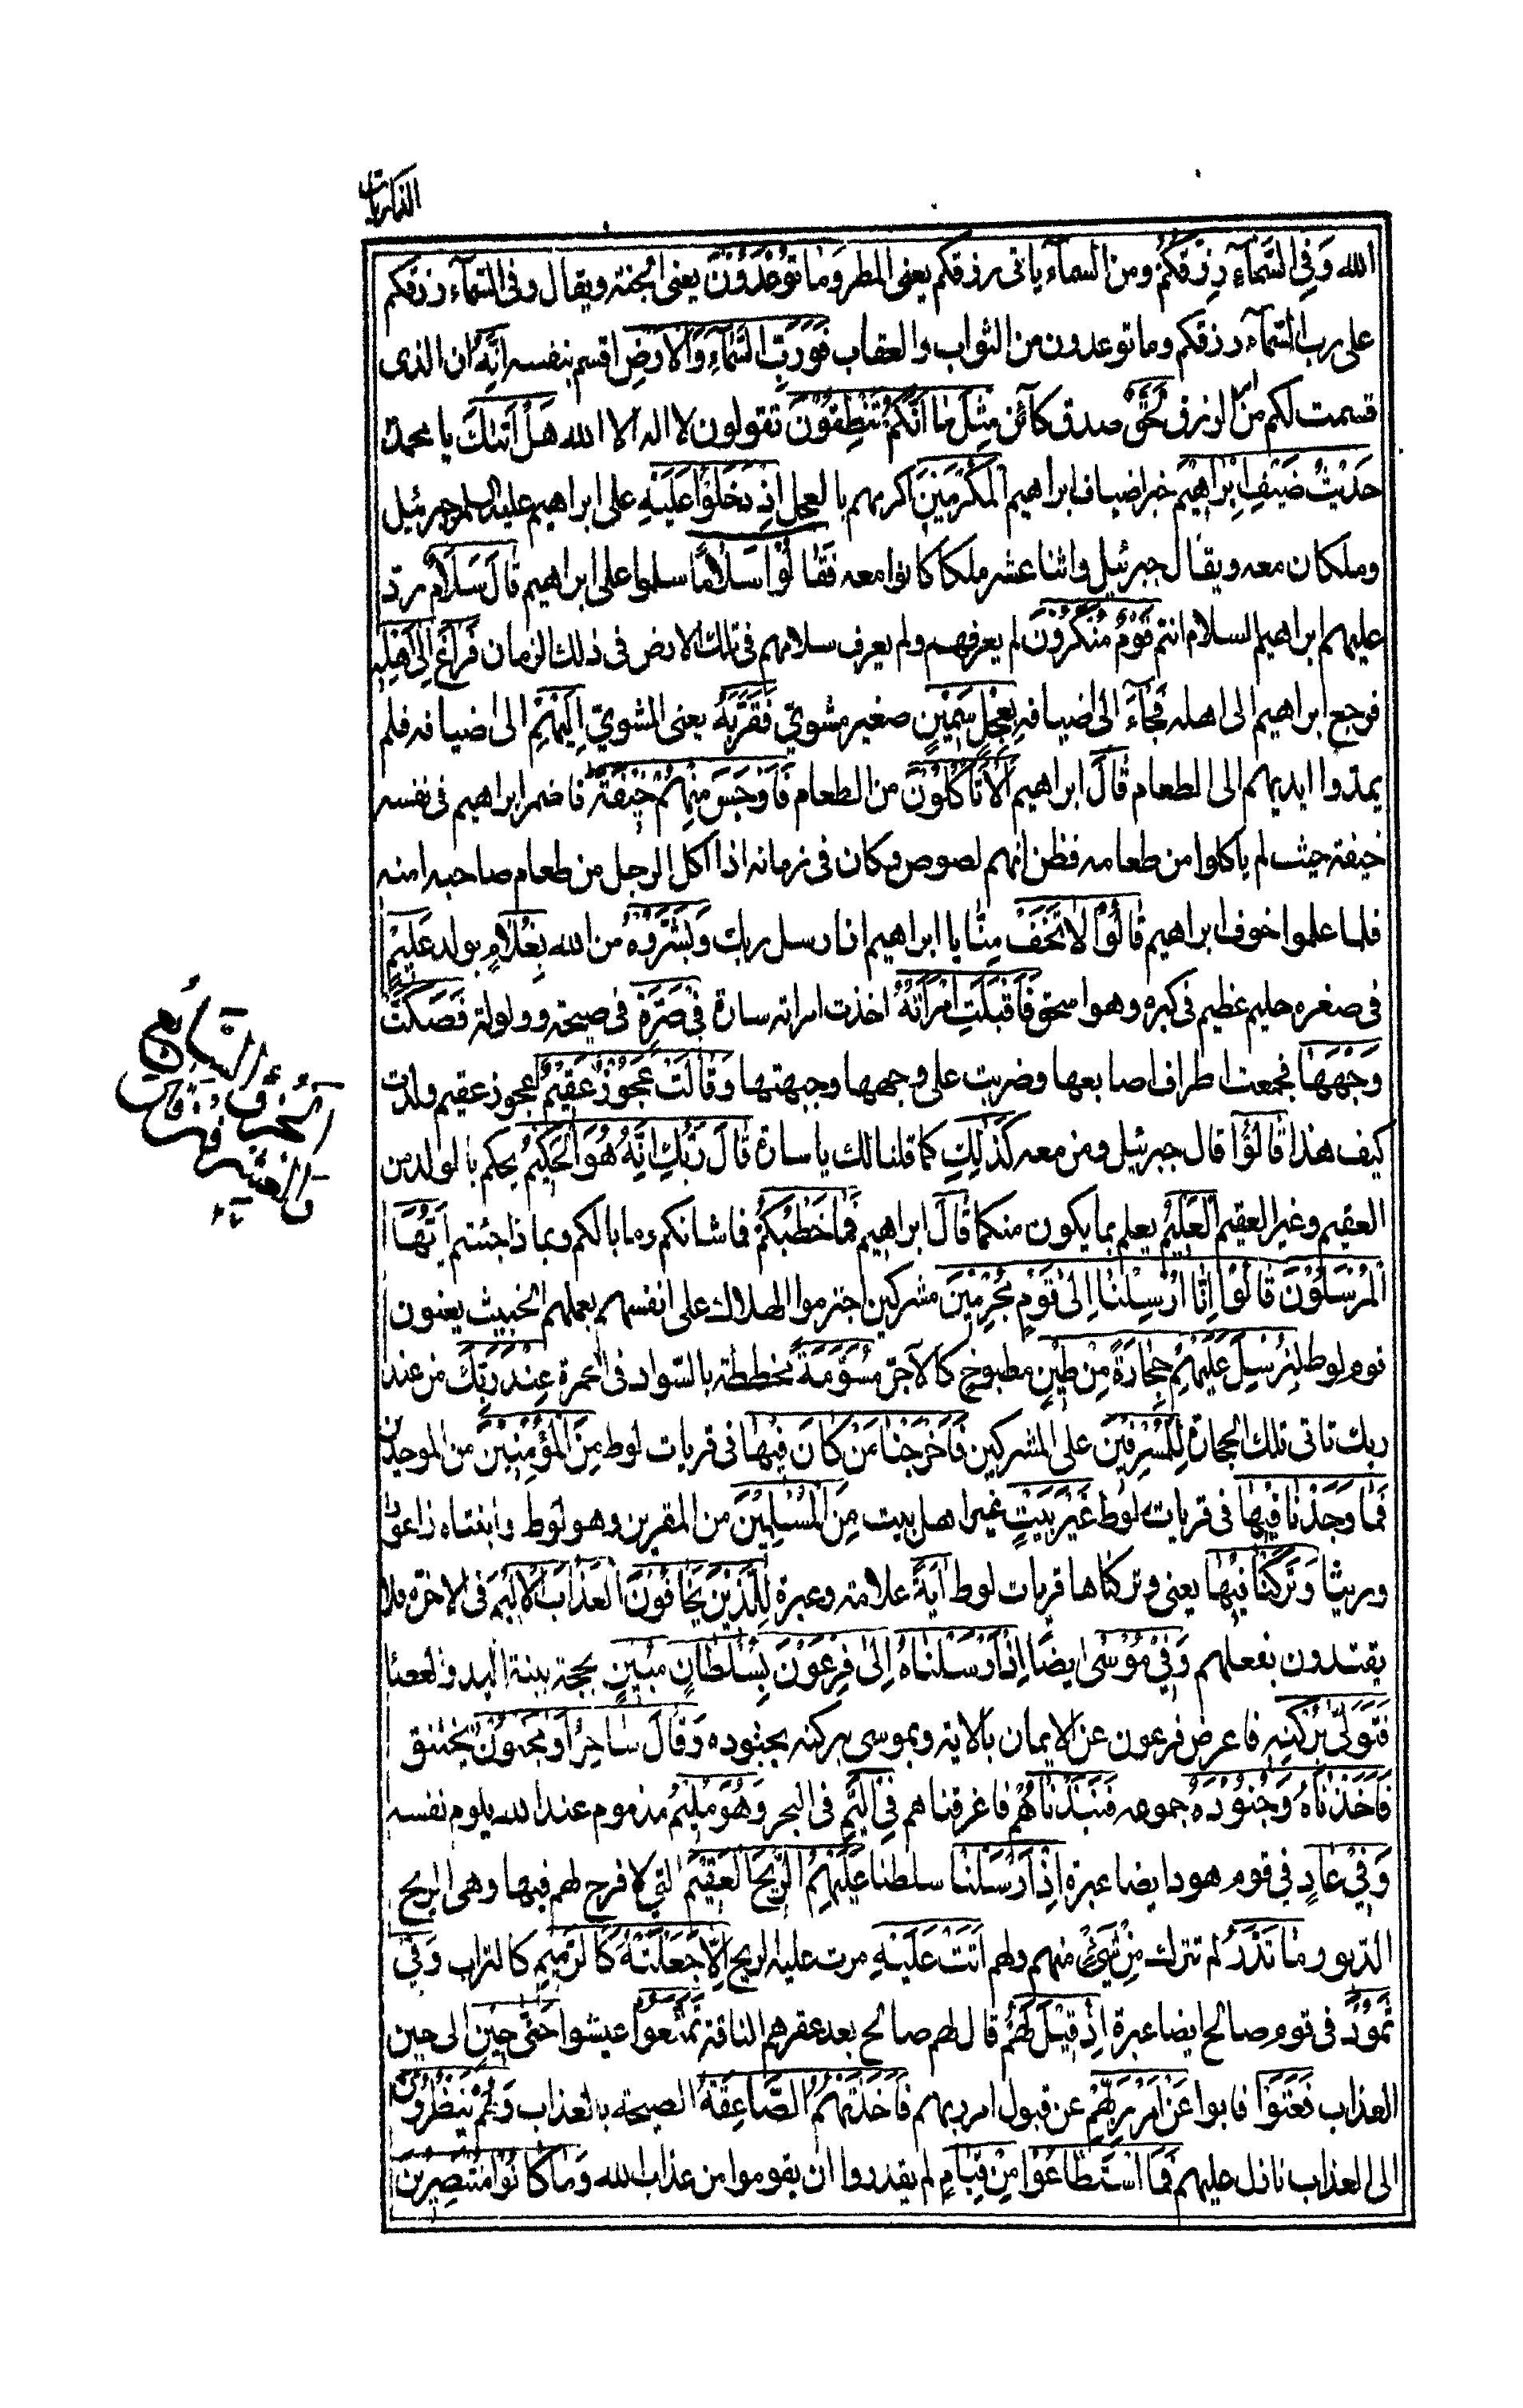 الذاريات
الله وَفِي السَّمَآءِ رِزْقُكُمْ ومن السماء ياتى رزقكم يعنى المطر وَمَا تُوعَدُونَ يعنى الجنة ويقال وفى السَّمَآء رزقكم
على رب السَّمَآء رزقكم وما توعدون من الثواب والعقاب فَوَرَبِّ السَّمَآءِ وَالْاَرْضِ اقسم بنفسه اِنَّهُ ان الذى
قسمت لكم من الرزق لَحَقٌّ صدق كآئن مِثْلَ مَا اَنَّكُمْ تَنْطِقُوْنَ تقولون لا اله الا الله هَلْ اَتٰىكَ يا محمد
حَدِيْثُ ضَيْفِ اِبْرَاهِيْمَ خبر اضياف ابراهيم الْمُكْرَمِيْنَ اكرمهم بالعجل اِذْ دَخَلُوْا عَلَيْهِ على ابراهيم عليه السلم جبرئيل
وملكان معه ويقال جبرئيل واثنا عشر ملكا كانوا معه فَقَالُوْا سَلَامًا سلموا على ابراهيم قَالَ سَلَامٌ رد
عليهم ابراهيم السلام انتم قَوْمٌ مُنْكَرُوْنَ لم يعرفهم ولم يعرف سلامهم فى تلك الارض فى ذلك الزمان فَرَاغَ اِلٰى اَهْلِهِ
فرجع ابراهيم الى اهله فَجَآءَ الى اضيافه بِعِجْلٍ سَمِيْنٍ صغير مشوىّ فَقَرَّبَهُ يعنى المشوىّ اِلَيْهِمْ الى اضيافه فلم
يمدّوا ايديهم الى الطعام قَالَ ابراهيم اَلَا تَاْكُلُوْنَ من الطعام فَاَوْجَسَ مِنْهُمْ خِيْفَةً فاضمر ابراهيم فى نفسه
خيفة حيث لم ياكلوا من طعامه فظن انهم لصوص وكان فى زمانه اذا اكل الرجل من طعام صاحبه امنه
فلما علموا خوف ابراهيم قَالُوْا لَا تَخَفْ مِنَّا يا ابراهيم انا رسل ربك وَبَشَّرُوْهُ من الله بِغُلَامٍ بولد عَلِيْمٍ
فى صغره حليم عظيم فى كبره وهو اسحق فَاَقْبَلَتِ امْرَاَتُهُ اخذت امراته سارة فِيْ صَرَّةٍ فى صيحة وولولة فَصَكَّتْ
وَجْهَهَا فجمعت اطراف اصابعها وضربت على وجهها وجبهتها وَقَالَتْ عَجُوْزٌ عَقِيْمٌ اعجوز عقيم ولدت
كيف هذا قَالُوْا قال جبرئيل ومن معه كَذٰلِكِ كما قلنا لك يا سارة قَالَ رَبُّكِ اِنَّهُ هُوَ الْحَكِيْمُ يحكم بالولد من
العقيم وغير العقيم الْعَلِيْمُ يعلم بما يكون منكما قَالَ ابراهيم فَمَا خَطْبُكُمْ فما شانكم وما بالكم وبما ذا جئتم اَيُّهَا
الْمُرْسَلُوْنَ قَالُوْا اِنَّا اُرْسِلْنَا اِلٰى قَوْمٍ مُجْرِمِيْنَ مشركين اجترموا الهلاك على انفسهم بعملهم الخبيث يعنون
قوم لوط لِنُرْسِلَ عَلَيْهِمْ حِجَارَةً مِنْ طِيْنٍ مطبوخ كالآجرّ مُسَوَّمَةً مخططة بالسّواد فى الحمرة عِنْدَ رَبِّكَ من عند
ربك تاتى تلك الحجارة لِلْمُسْرِفِيْنَ على المشركين فَاَخْرَجْنَا مَنْ كَانَ فِيْهَا فى قريات لوط مِنَ الْمُؤْمِنِيْنَ من الموحدين
فَمَا وَجَدْنَا فِيْهَا فى قريات لوط غَيْرَ بَيْتٍ غير اهل بيت مِنَ الْمُسْلِمِيْنَ من المقرين وهو لوط وابنتاه زاعورا
وريثا وَتَرَكْنَا فِيْهَا يعنى وتركناها قريات لوط اٰيَةً علامة وعبرة لِلَّذِيْنَ يَخَافُوْنَ الْعَذَابَ الْاَلِيْمَ فى الاخرة فلا
يقتدون بفعلهم وَفِيْ مُوْسٰى ايضا اِذْ اَرْسَلْنَاهُ اِلٰى فِرْعَوْنَ بِسُلْطَانٍ مُبِيْنٍ بحجة بينة اليد والعصا
فَتَوَلّٰى بِرُكْنِهِ فاعرض فرعون عن الايمان بالاية وبموسى بركنه بجنوده وَقَالَ سَاحِرٌ اَوْ مَجْنُوْنٌ يختنق
فَاَخَذْنَاهُ وَجُنُوْدَهُ جموعه فَنَبَذْنَاهُمْ فاغرقناهم فِي الْيَمِّ فى البحر وَهُوَ مُلِيْمٌ مذموم عند الله يلوم نفسه
وَفِيْ عَادٍ فى قوم هود ايضا عبرة اِذْ اَرْسَلْنَا سلطنا عَلَيْهِمُ الرِّيْحَ الْعَقِيْمَ التى لا فرج لهم فيها وهى الريح
الدبور مَا تَذَرُ لم تترك مِنْ شَيْءٍ منهم ولهم اَتَتْ عَلَيْهِ مرت عليه الريح اِلَّا جَعَلَتْهُ كَالرَّمِيْمِ كالتراب وَفِيْ
ثَمُوْدَ فى قوم صالح ايضا عبرة اِذْ قِيْلَ لَهُمْ قال لهم صالح بعد عقرهم الناقة تَمَتَّعُوْا عيشوا حَتّٰى حِيْنٍ الى حين
العذاب فَعَتَوْا فابوا عَنْ اَمْرِ رَبِّهِمْ عن قبول امر ربهم فَاَخَذَتْهُمُ الصَّاعِقَةُ الصيحة بالعذاب وَهُمْ يَنْظُرُوْنَ
الى العذاب نازل عليهم فَمَا اسْتَطَاعُوْا مِنْ قِيَامٍ لم يقدروا ان يقوموا من عذاب الله وَمَا كَانُوْا مُنْتَصِرِيْنَ
الجزؤ السابع
والعشرون